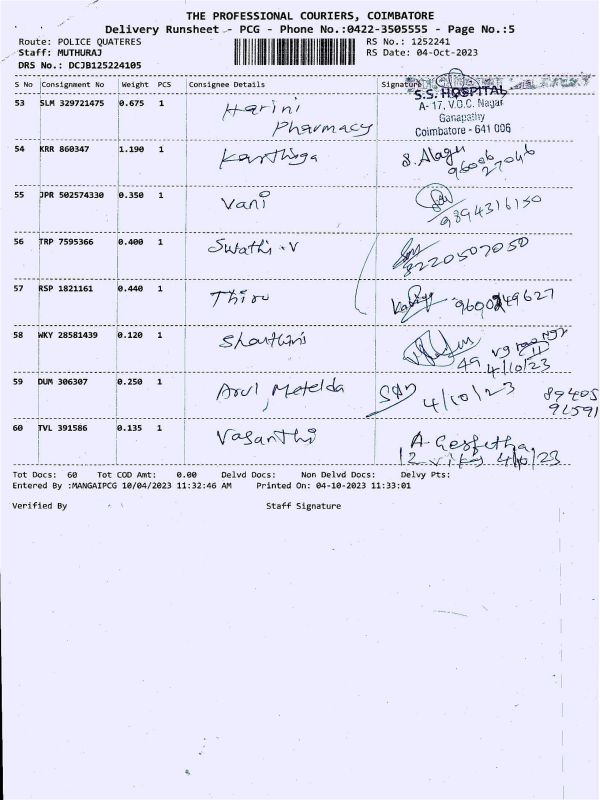 THE PROFESSIONAL COURIERS, COIMBATORE
Delivery Runsheet - PCG - Phone No.:0422-3505555 - Page No.:5
Route: POLICE QUATERES RS No.: 1252241
Staff: MUTHURAJ RS Date: 04-Oct-2023
DRS No.: DCJB125224105
S No Consignment No Weight PCS Consignee Details Signature
S.S. HOSPITAL
53 SLM 329721475 0.675 1 Harini A- 17, V.O.C. Nagar
Pharmacy Ganapathy
Coimbatore - 641 006
54 KRR 860347 1.190 1 Karthiga S. Alagu
96006
27046
55 JPR 502574330 0.350 1 Vani
9894316150
56 TRP 7595366 0.400 1 Swathi . V
8220507050
57 RSP 1821161 0.440 1 Thiru 9600249627
58 WKY 28581439 0.120 1 Shanthini
49 4/10/23
59 DUM 306307 0.250 1 Arul Metelda 4/10/23 89405
91591
60 TVL 391586 0.135 1 Vasanthi A.
4/10/23
Tot Docs: 60 Tot COD Amt: 0.00 Delvd Docs: Non Delvd Docs: Delvy Pts:
Entered By :MANGAIPCG 10/04/2023 11:32:46 AM Printed On: 04-10-2023 11:33:01
Verified By Staff Signature